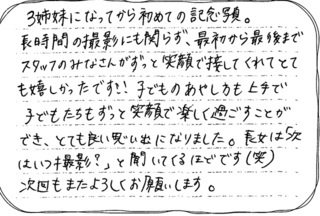 3姉妹になってから初めての記念写真。
長時間の撮影にも関らず、最初から最後まで
スタッフのみなさんがずっと笑顔で接してくれてとて
も嬉しかったです!! 子どものあやしも上手で
子どもたちもずっと笑顔で楽しく過ごすことが
でき、とても良い思い出になりました。長女は「次
はいつ撮影?」と聞いてくるほどです(笑)
次回もまたよろしくお願いします。